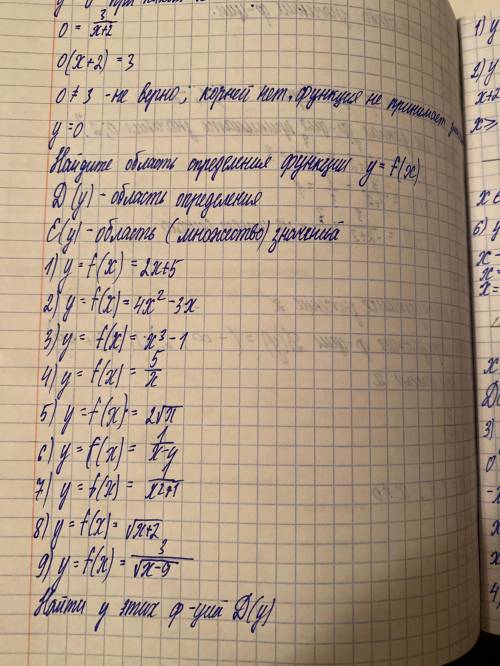 0 = 3/(x+2)
0(x+2) = 3
0 ≠ 3 - не верно; корней нет. функция не принимает
y = 0.
Найдите область определения функции y = f(x)
D(y) - область определения
E(y) - область (множество) значений
1) y = f(x) = 2x+5
2) y = f(x) = 4x² - 3x
3) y = f(x) = x³ - 1
4) y = f(x) = 5/x
5) y = f(x) = 2√x
6) y = f(x) = 1/(x-4)
7) y = f(x) = 1/(x²+1)
8) y = f(x) = √x+2
9) y = f(x) = 3/√x-9
Найти у этих ф-уий D(y)
1) y
2) y
x+2
x ≥
6) y
x -
x =
x =
x
3)
x
x
4